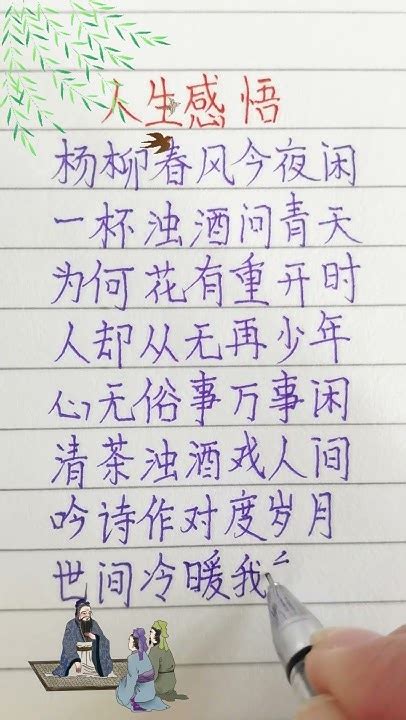 人生感悟
杨柳春风今夜闲
一杯浊酒问青天
为何花有重开时
人却从无再少年
心无俗事万事闲
清茶浊酒戏人间
吟诗作对度岁月
世间冷暖我